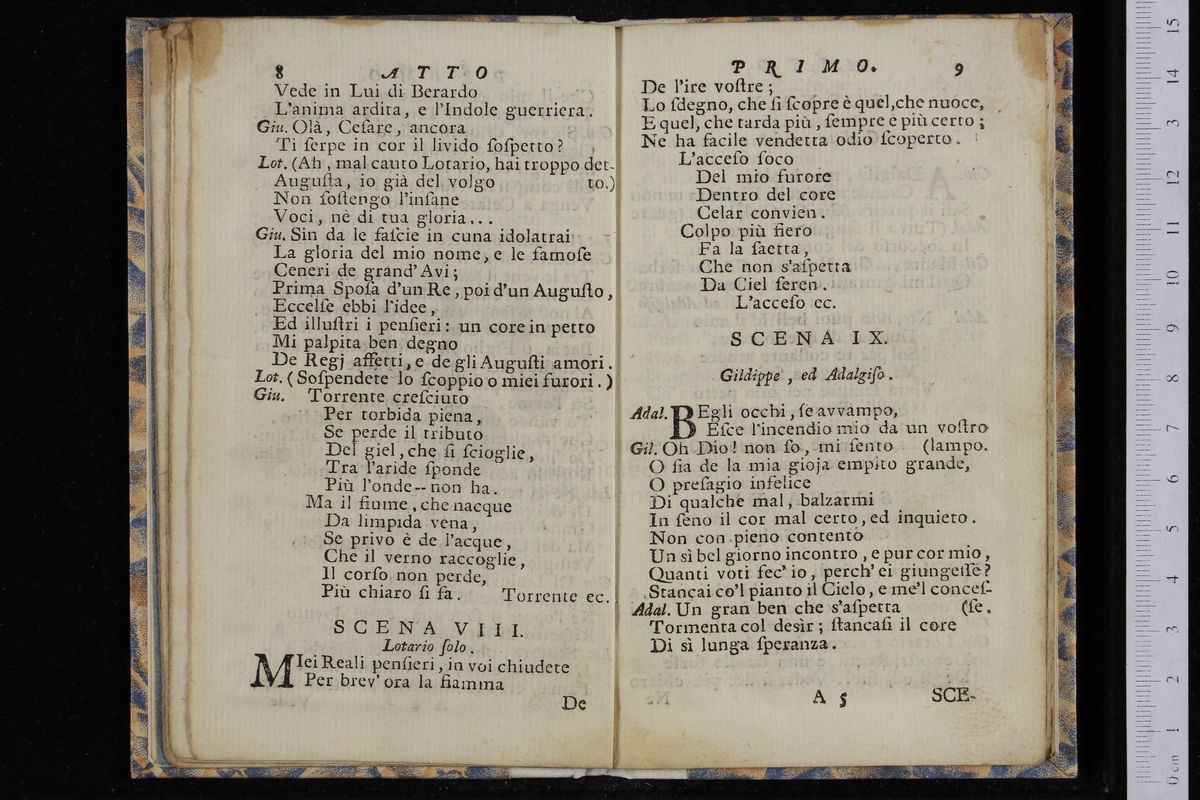 8 ATTO
Vede in Lui di Berardo
L'anima ardita, e l'Indole guerriera.
Giu. Olà, Ceſare, ancora
Ti ſerpe in cor il livido ſoſpetto?
Lot. (Ah, mal cauto Lotario, hai troppo det-
Auguſta, io già del volgo to.)
Non ſoſtengo l'inſane
Voci, nè di tua gloria...
Giu. Sin da le faſcie in cuna idolatrai
La gloria del mio nome, e le famoſe
Ceneri de grand' Avi;
Prima Spoſa d'un Re, poi d'un Auguſto,
Eccelſe ebbi l'idee,
Ed illuſtri i penſieri: un core in petto
Mi palpita ben degno
De Regj affetti, e de gli Auguſti amori.
Lot. (Soſpendete lo ſcoppio o miei furori.)
Giu. Torrente creſciuto
Per torbida piena,
Se perde il tributo
Del giel, che ſi ſcioglie,
Tra l'aride ſponde
Più l'onde -- non ha.
Ma il fiume, che nacque
Da limpida vena,
Se privo è de l'acque,
Che il verno raccoglie,
Il corſo non perde,
Più chiaro ſi fa. Torrente ec.
SCENA VIII.
Lotario ſolo.
MIei Reali penſieri, in voi chiudete
Per brev' ora la fiamma
De
PRIMO. 9
De l'ire voſtre;
Lo ſdegno, che ſi ſcopre è quel, che nuoce,
E quel, che tarda più, ſempre è più certo;
Ne ha facile vendetta odio ſcoperto.
L'acceſo foco
Del mio furore
Dentro del core
Celar convien.
Colpo più fiero
Fa la ſaetta,
Che non s'aſpetta
Da Ciel ſeren.
L'acceſo ec.
SCENA IX.
Gildippe, ed Adalgiſo.
Adal. BEgli occhi, ſe avvampo,
Eſce l'incendio mio da un voſtro
Gil. Oh Dio! non ſo, mi ſento (lampo.
O ſia de la mia gioja empito grande,
O preſagio infelice
Di qualche mal, balzarmi
In ſeno il cor mal certo, ed inquieto.
Non con pieno contento
Un sì bel giorno incontro, e pur cor mio,
Quanti voti fec' io, perch' ei giungeſſe?
Stancai co'l pianto il Cielo, e me'l conceſ-
Adal. Un gran ben che s'aſpetta (ſe.
Tormenta col desìr; ſtancaſi il core
Di sì lunga ſperanza.
A 5 SCE-